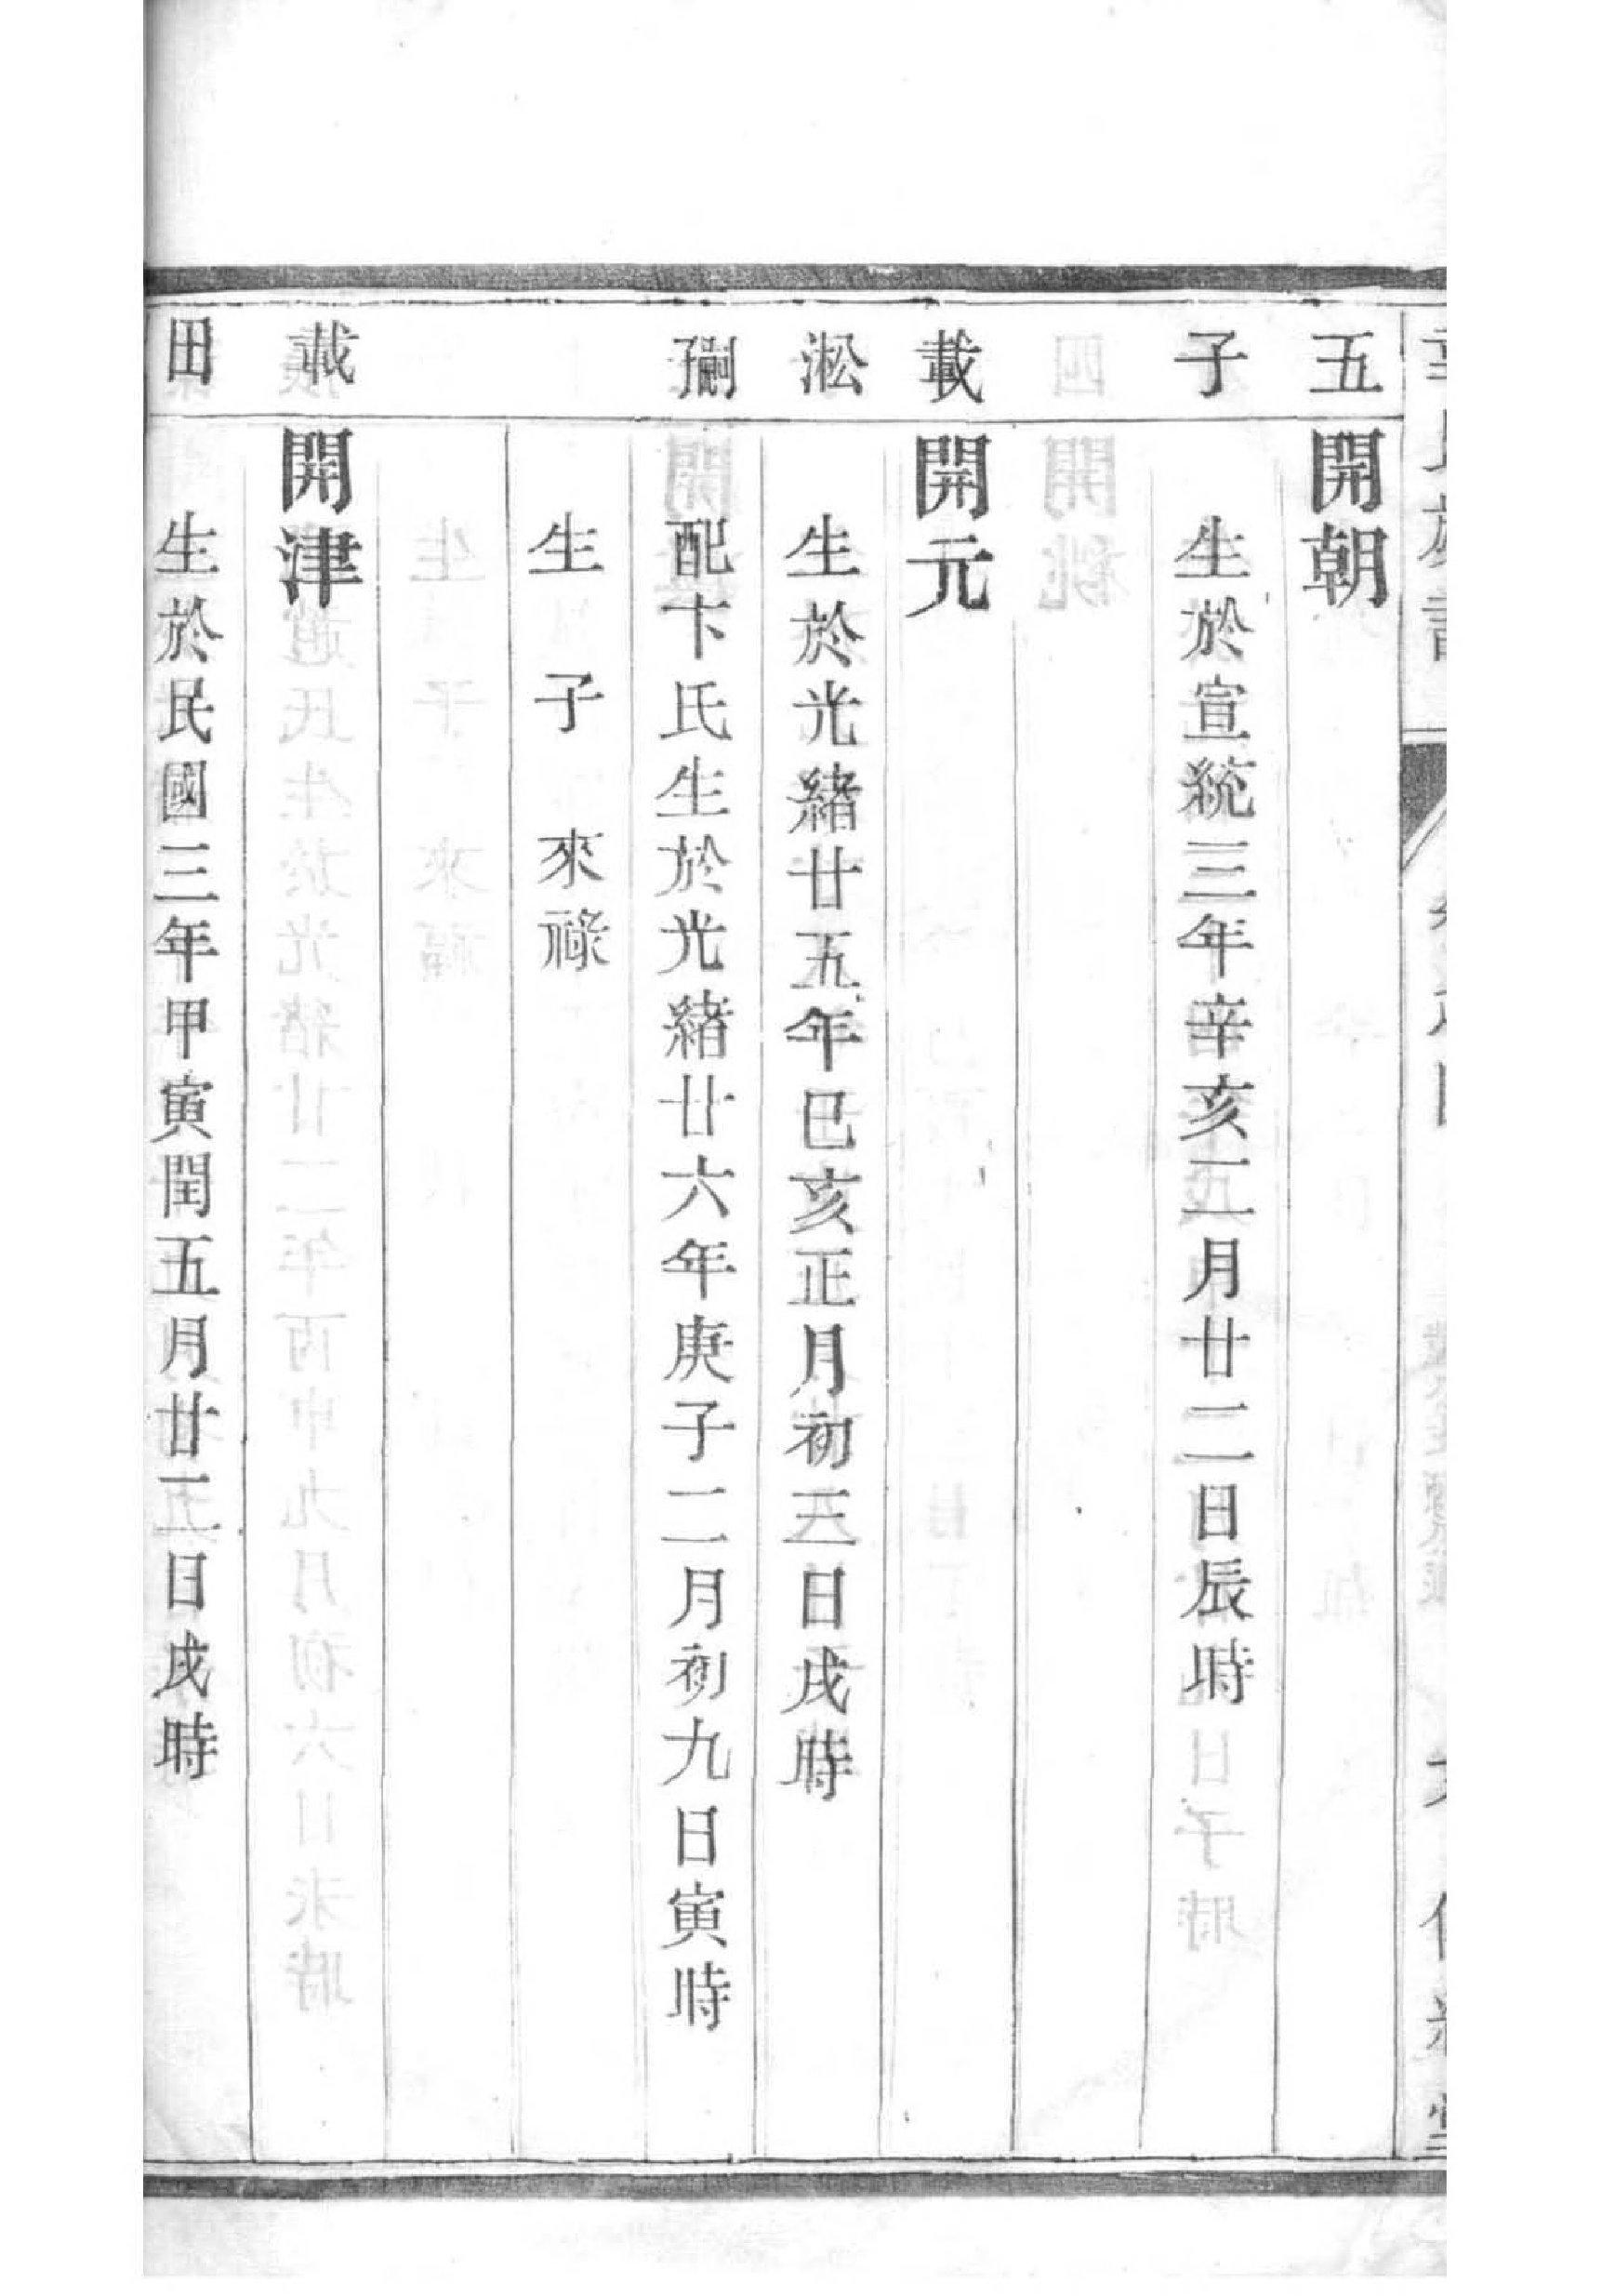 五 開朝
子 生於宣統三年辛亥 月廿二日辰時
載 開元
淞 生於光緒廿五年巳亥正月初三日戌時
配卞氏生於光緒廿六年庚子二月初九日寅時
生子來祿
載 開津
田 生於民國三年甲寅閏五月廿二日戌時